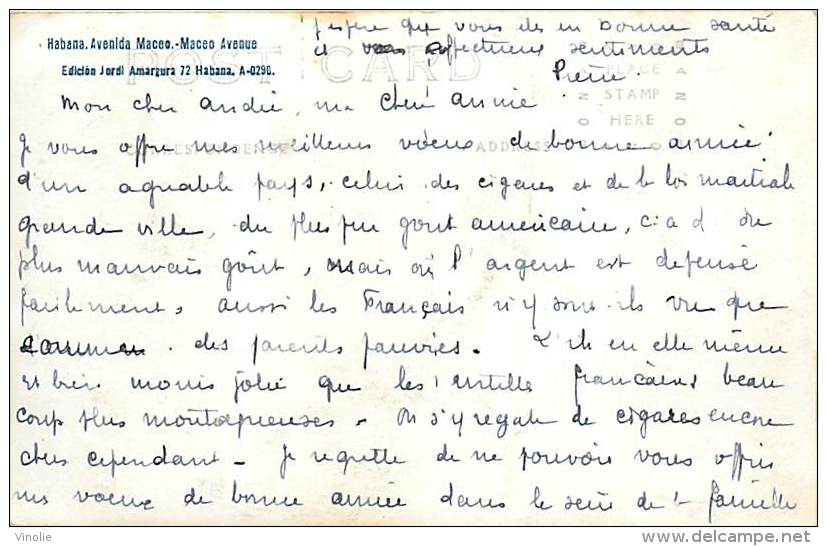 Habana. Avenida Maceo.-Maceo Avenue
Edición Jordi Amargura 72 Habana, A-0296.
POST CARD
CORRESPONDENCE
ADDRESS
PLACE
STAMP
HERE
Mon cher André, ma chère Annie
Je vous offre mes meilleurs voeux de bonne année
d'un agréable pays, celui des cigares et de la loi martiale
grande ville, du plus pur goût américain, c.a.d. du
plus mauvais goût, mais où l'argent est dépensé
facilement, aussi les Français n'y sont-ils vu que
comme des parents pauvres. L'île en elle même
est bien moins jolie que les Antilles françaises beau
coup plus montagneuses. On s'y régale de cigares encore
chers cependant. Je regrette de ne pouvoir vous offrir
mes voeux de bonne année dans le sein de la famille
J'espère que vous êtes en bonne santé
et vous affectueux sentiments
Pierre
Vinolie
delcampe.net